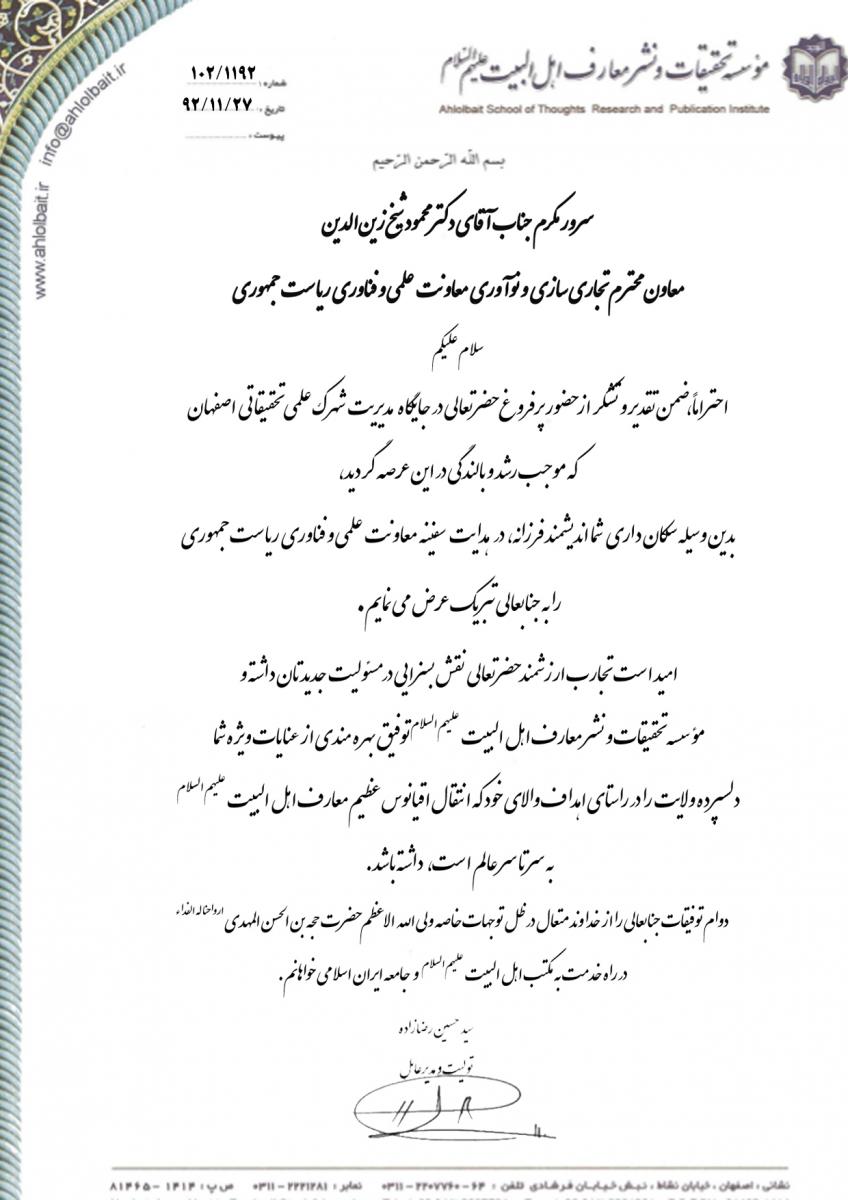 مؤسسه تحقیقات و نشر معارف اهل البیت علیهم السلام
Ahlolbait School of Thoughts Research and Publication Institute
شماره : ۱۰۲/۱۱۹۲
تاریخ : ۹۲/۱۱/۲۷
پیوست :
info@ahlolbait.ir
www.ahlolbait.ir
بسم الله الرّحمن الرّحیم
سرور مکرم جناب آقای دکتر محمود شیخ زین الدین
معاون محترم تجاری سازی و نوآوری معاونت علمی و فناوری ریاست جمهوری
سلام علیکم
احتراماً، ضمن تقدیر و تشکر از حضور پرفروغ حضرتعالی در جایگاه مدیریت شهرک علمی تحقیقاتی اصفهان
که موجب رشد و بالندگی در این عرصه گردید،
بدین وسیله سکان داری شما اندیشمند فرزانه، در هدایت سفینه معاونت علمی و فناوری ریاست جمهوری
را به جنابعالی تبریک عرض می نمایم .
امید است تجارب ارزشمند حضرتعالی نقش بسزایی در مسئولیت جدیدتان داشته و
مؤسسه تحقیقات و نشر معارف اهل البیت علیهم السلام توفیق بهره مندی از عنایات ویژه شما
دلسپرده ولایت را در راستای اهداف والای خود که انتقال اقیانوس عظیم معارف اهل البیت علیهم السلام
به سرتاسر عالم است، داشته باشد.
دوام توفیقات جنابعالی را از خداوند متعال در ظل توجهات خاصه ولی الله الاعظم حضرت حجه بن الحسن المهدی ارواحنا له الفداء
در راه خدمت به مکتب اهل البیت علیهم السلام و جامعه ایران اسلامی خواهانم .
سید حسین رضازاده
تولیت و مدیرعامل
نشانی : اصفهان ، خیابان نشاط ، نبش خیابان فرشادی تلفن : ۶۴ - ۲۲۰۷۷۶۰ - ۰۳۱۱ نمابر : ۲۲۲۱۲۸۱ - ۰۳۱۱ ص پ : ۱۴۱۴ - ۸۱۴۶۵